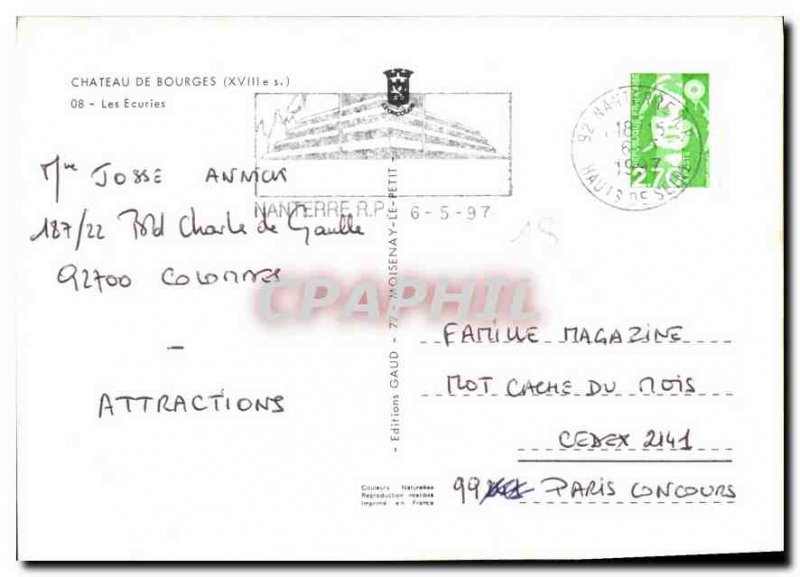 CHATEAU DE BOURGES (XVIIIe s.)
08 - Les Ecuries
NANTERRE R.P. 6-5-97
92 NANTERRE R.P.
18H 15-5
6
1997
HAUTS DE SEINE
2,70
Mme JOSSE ANNICK
187/22 Bld Charle de Gaulle
92700 COLOMBES
-
ATTRACTIONS
- Editions GAUD - 77 - MOISENAY-LE-PETIT -
18
CPAPHIL
FAMILLE MAGAZINE
MOT CACHE DU MOIS
CEDEX 2141
99 PARIS CONCOURS
Couleurs Naturelles
Reproduction interdite
Imprimé en France